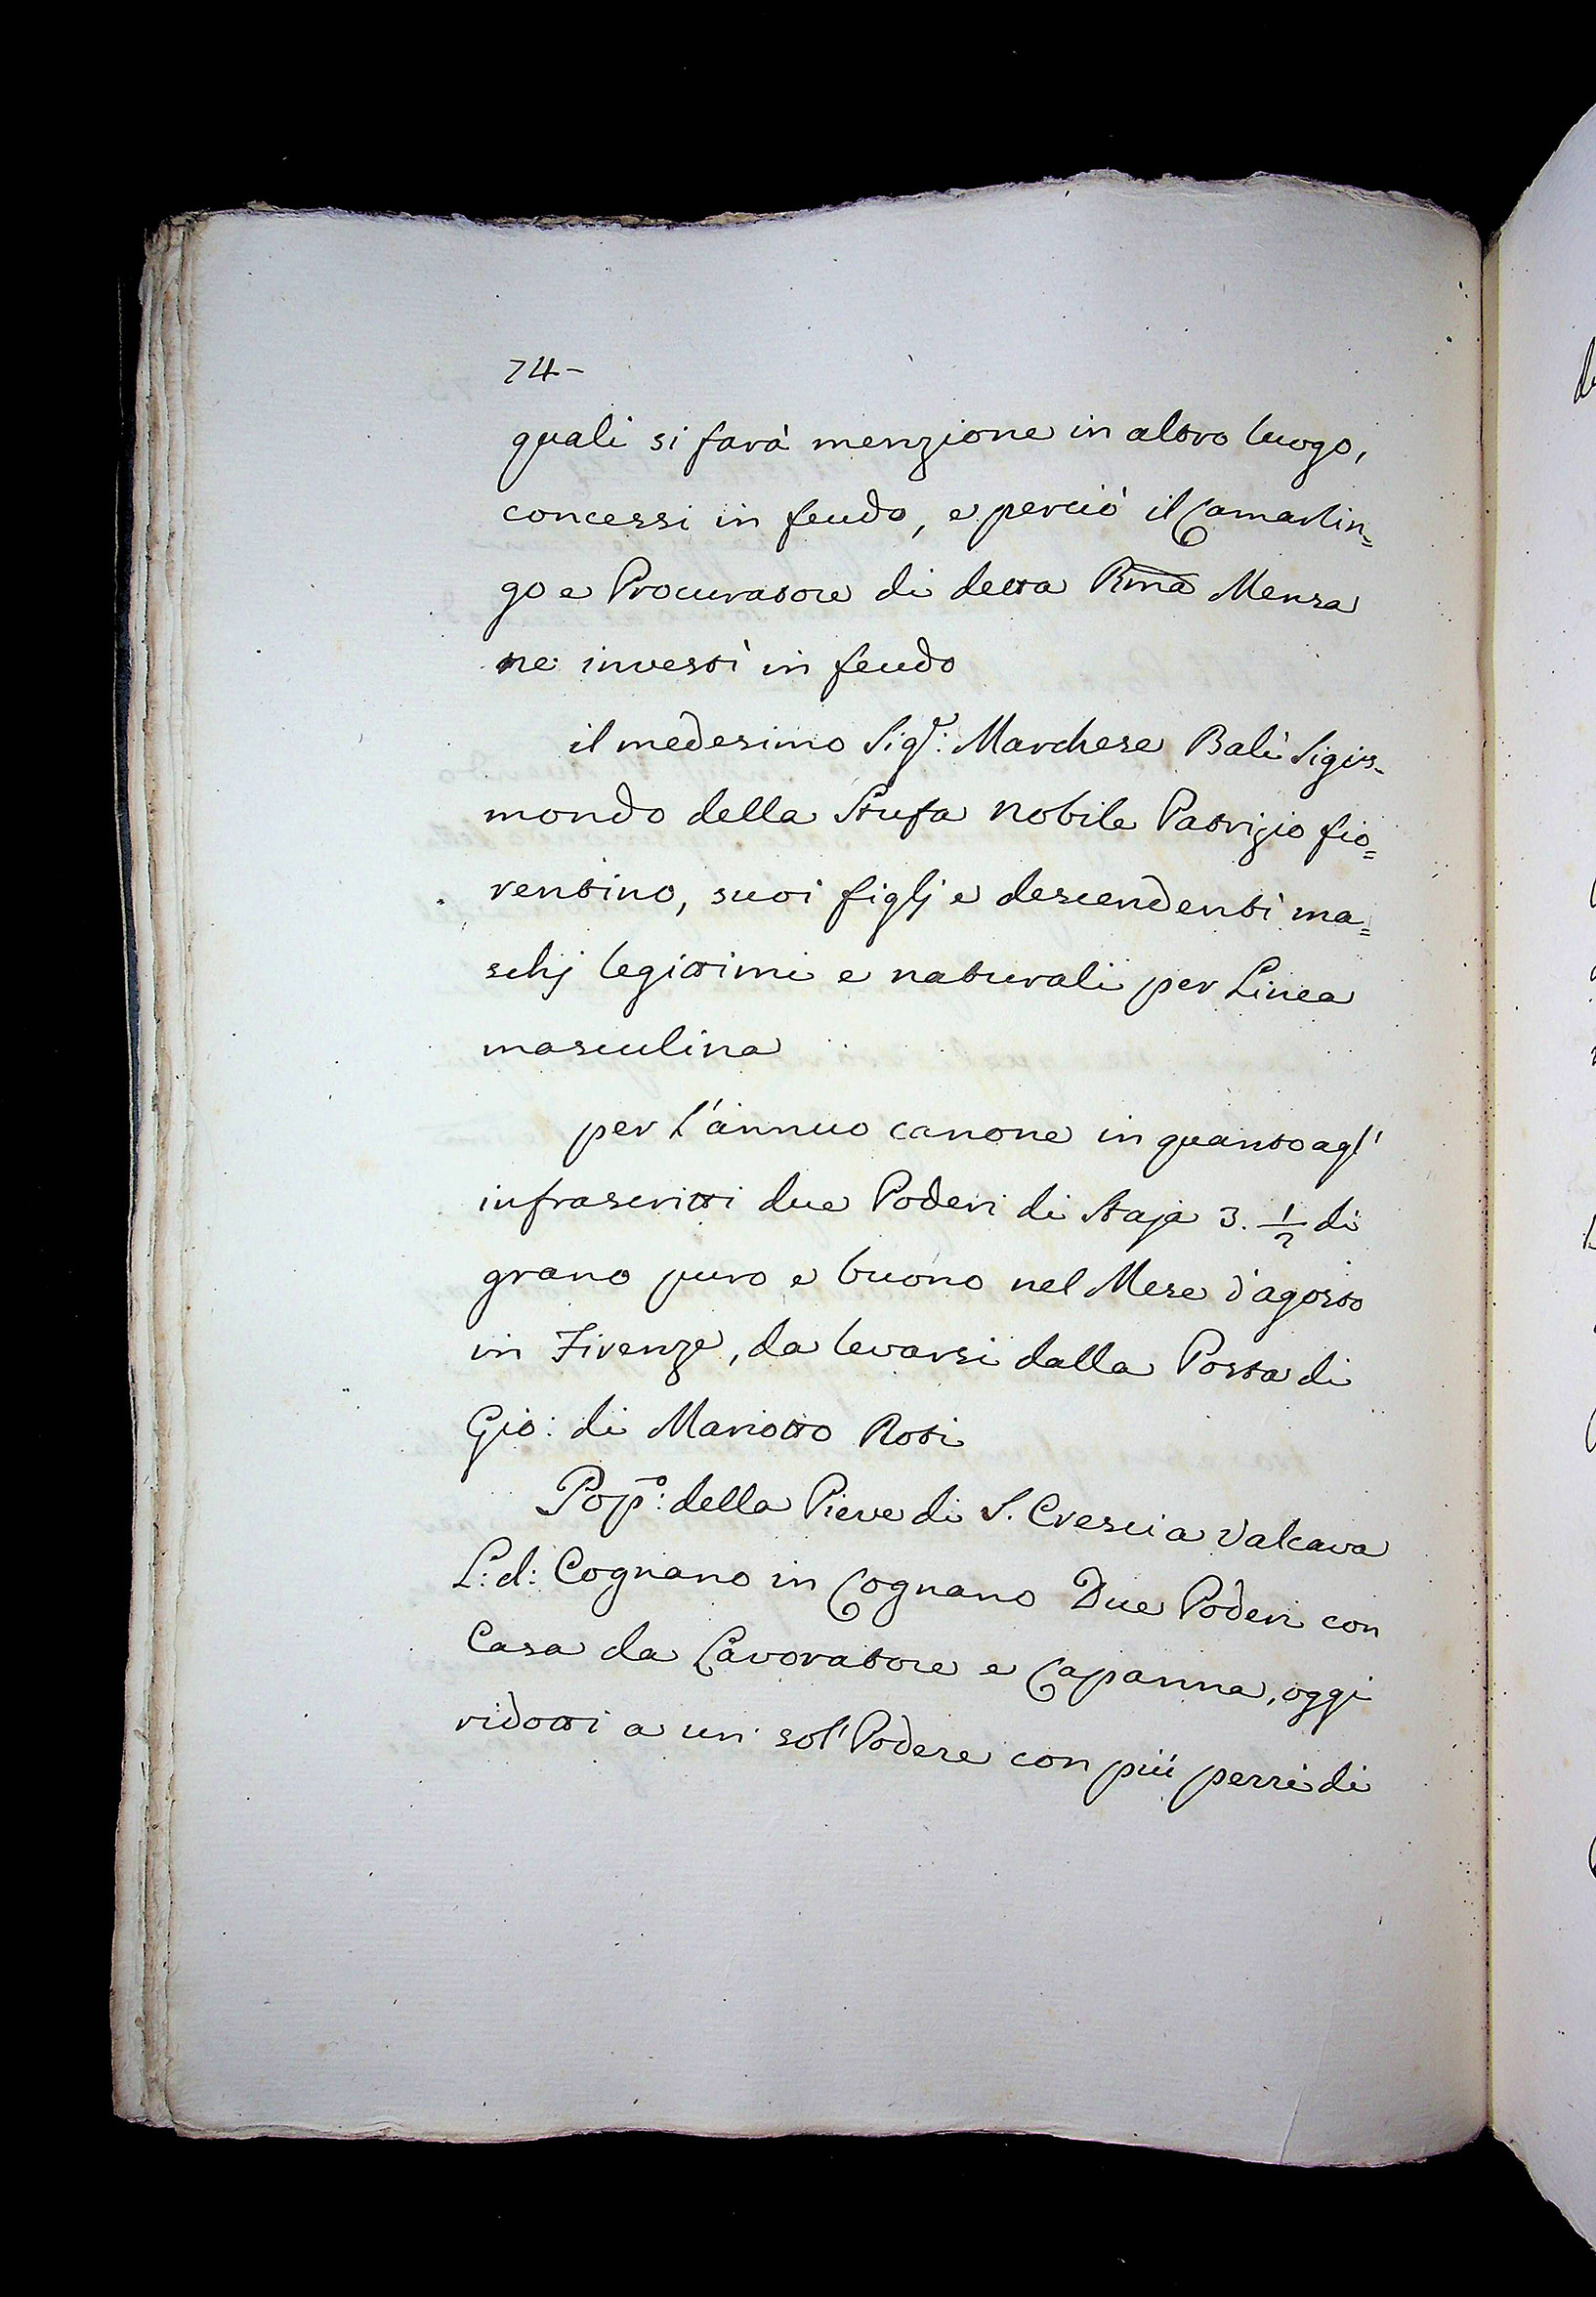 74-
quali si farà menzione in altro luogo,
concessi in feudo, e perciò il Camarlin=
go e Procuratore di detta Rma Mensa
ne investì in feudo
il medesimo Sigr: Marchese Balì Sigis=
mondo della Stufa nobile Patrizio fio=
rentino, suoi figlj e descendenti ma=
schj legittimi e naturali per Linea
masculina
per l'annuo canone in quanto agl'
infrascritti due Poderi di Staja 3. 1/2 di
grano puro e buono nel Mese d'agosto
in Firenze, da levarsi dalla Posta di
Gio: di Mariotto Roti
Popo: della Pieve di S. Cresci a Valcava
L: d: Cognano in Cognano Due Poderi con
Casa da Lavoratore e Capanna, oggi
ridotti a un sol' Podere con più pezzi di